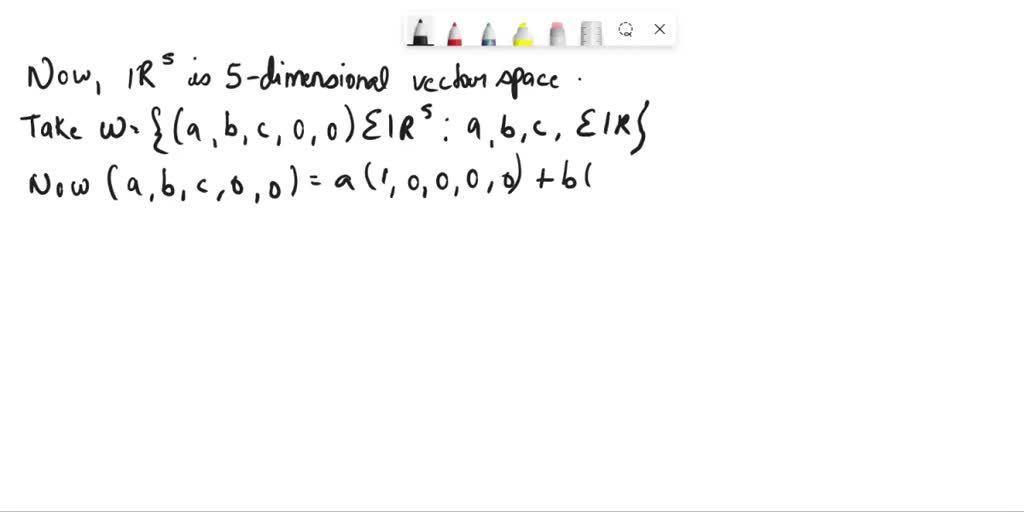 Now, IR⁵ is 5-dimensional vector space.
Take W = {(a, b, c, 0, 0) Σ IR⁵ : a, b, c, Σ IR}
Now (a, b, c, 0, 0) = a (1, 0, 0, 0, 0) + b (